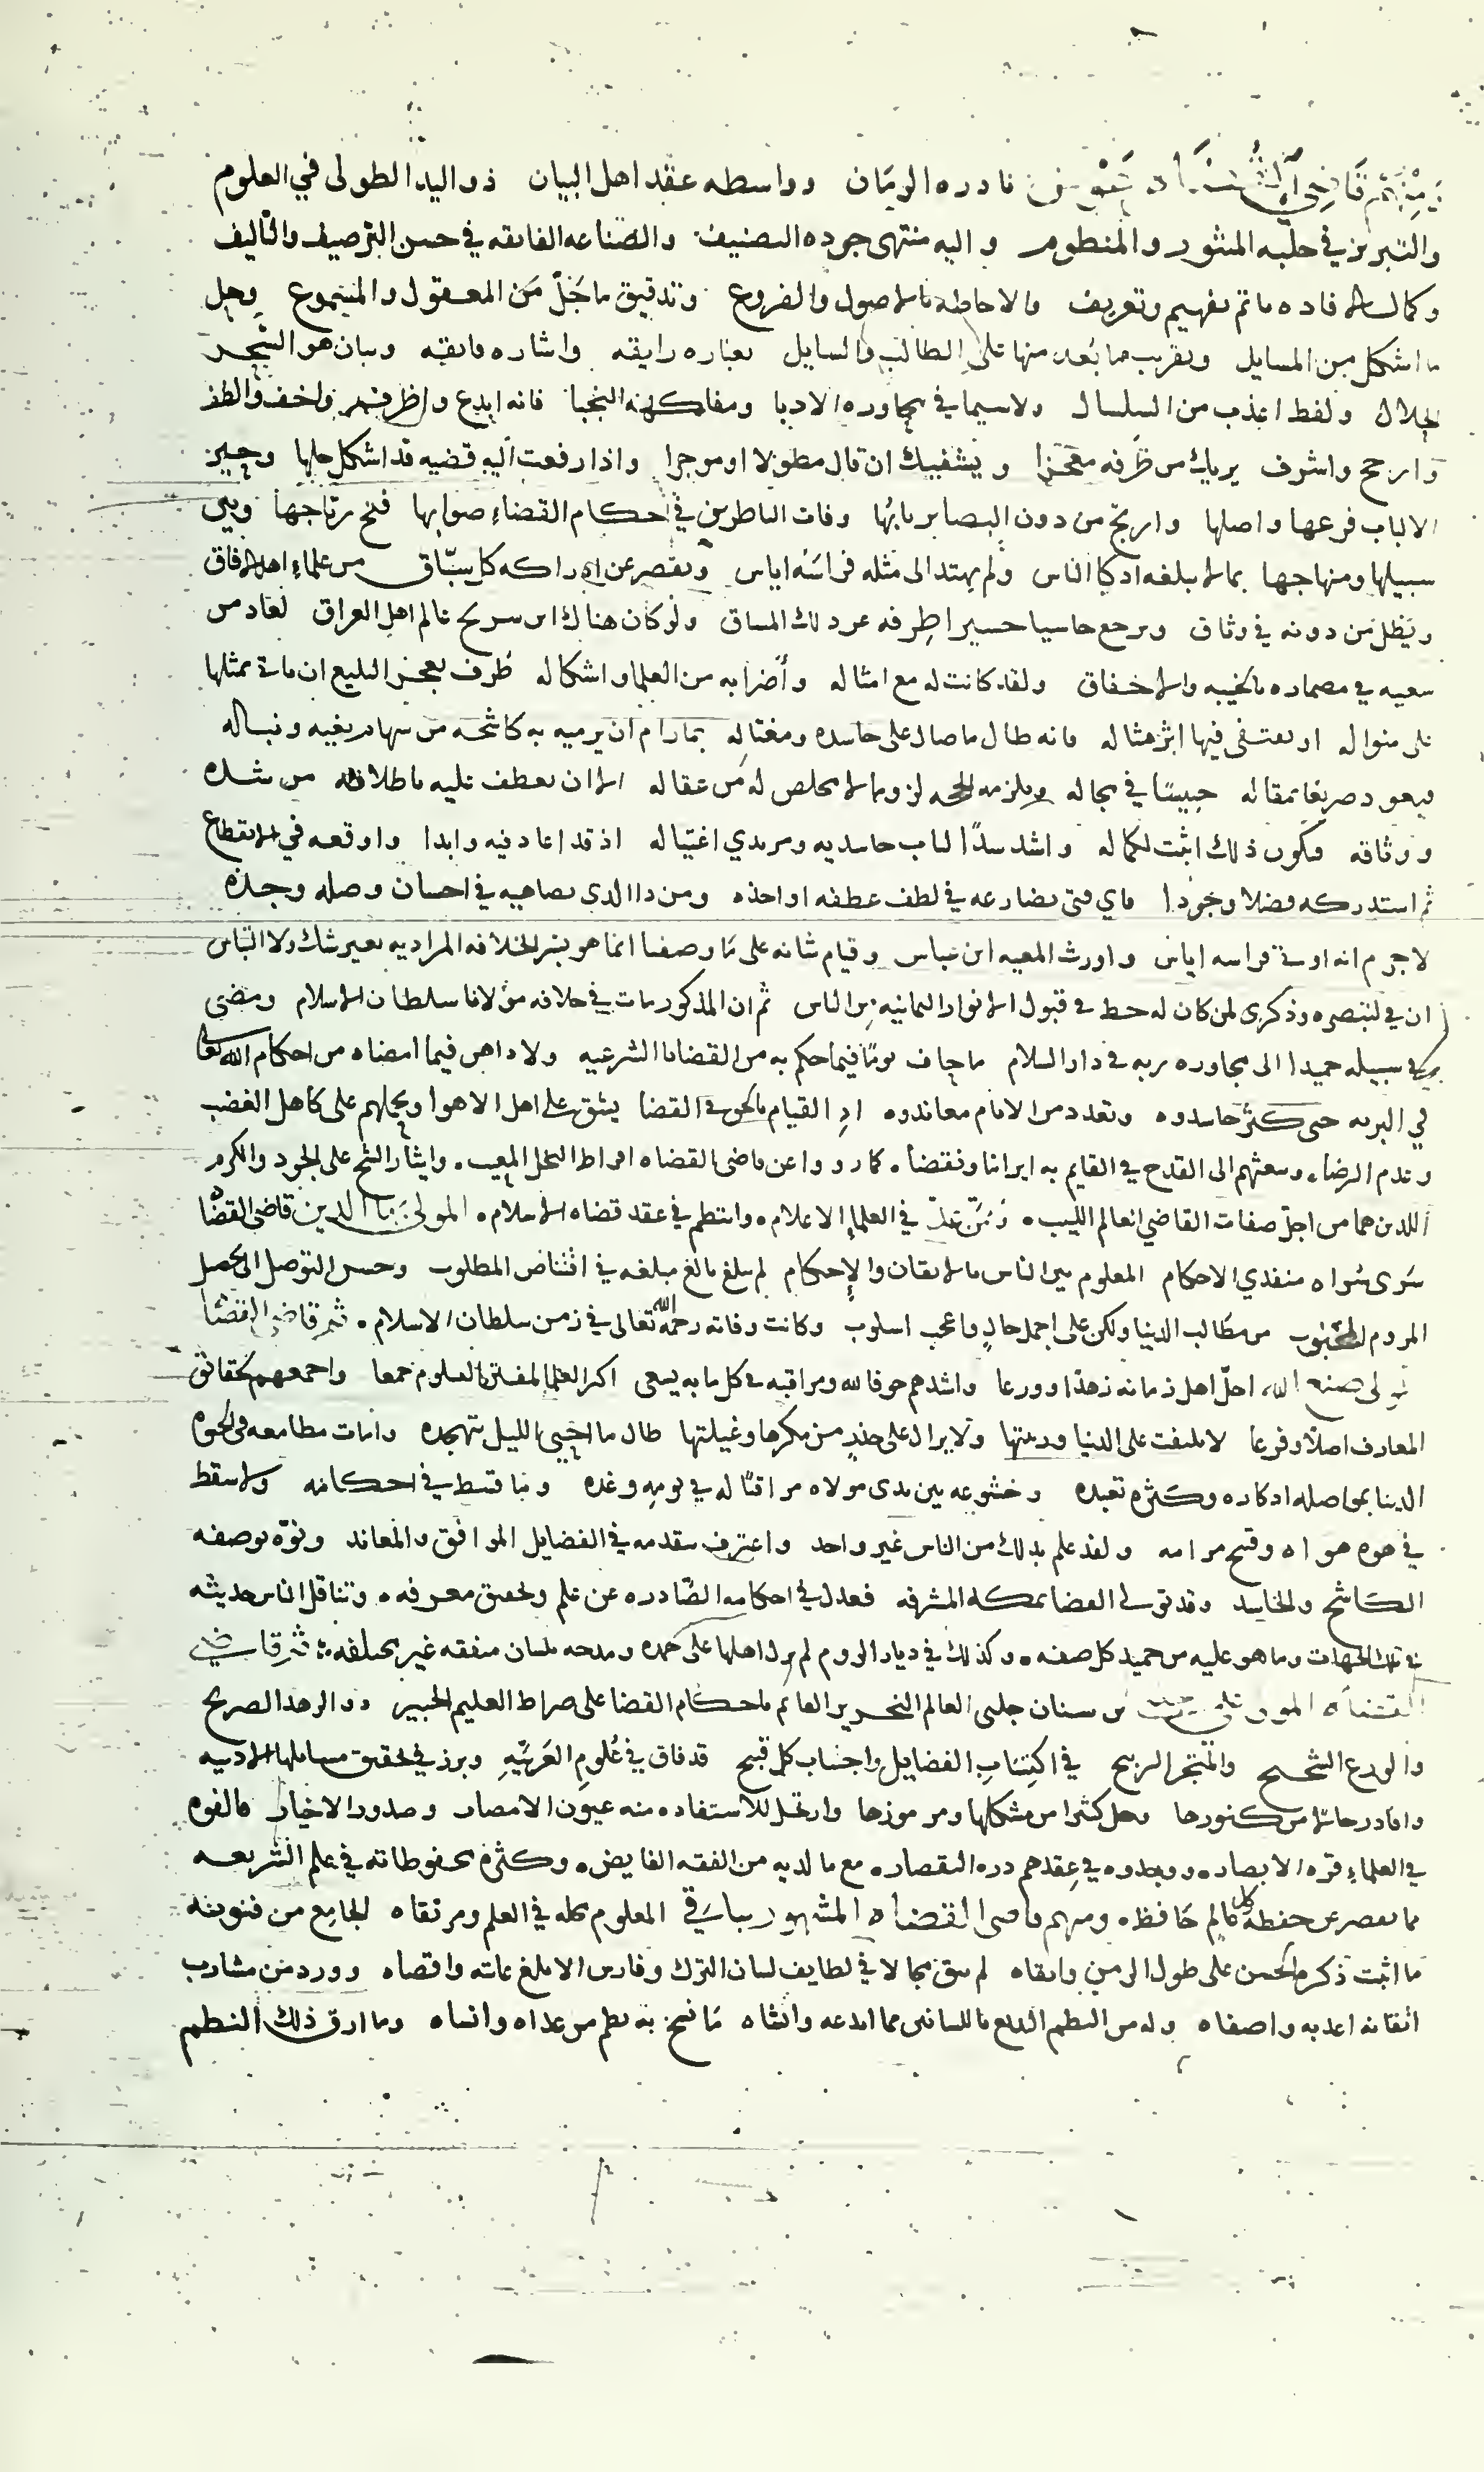 ومنهم قاضي نادره الزمان وواسطه عقد اهل البيان ذو اليد الطولى في العلوم
والتبريز في حلبه المنثور والمنظوم واليه منتهى جوده التصنيف والصناعه الفايقه في حسن الترصيف والتاليف
وكمال الافاده باتم تفهيم وتعريف والاحاطه بالاصول والفروع وتدقيق ما جل من المعقول والمسموع وحل
ما اشكل من المسايل وتقريب ما بعد منها على الطالب والسايل بعباره رايقه واشاره فايقه وبيان هو السحر
الحلال ولفظ اعذب من السلسال ولاسيما في محاوره الادبا ومفاكهة النجبا فانه ابدع واظرف واخف والطف
وارجح واشرف يريك من ظرفه معجزا ويشفيك ان قال مطولا او موجزا واذا رفعت اليه قضيه قد اشكل حلها وحير
الالباب فرعها واصلها وارتج من دون البصاير بابها وفات الناظرين في احكام القضاء صوابها فتح رتاجها وبين
سبيلها ومنهاجها بما لا يبلغه اذكيا الناس ولم يهتد الى مثله فراسه اياس وتقصر عن ادراكه كل سباق من علماء اهل الافاق
ويظل من دونه في وثاق ويرجع خاسيا حسيرا طرفه عن ذلك المساق ولو كان هناك ابن سريح عالم اهل العراق لعاد من
سعيه في مضماره بالخيبه والاخفاق ولقد كانت له مع امثاله واضرابه من العلما واشكاله ظرف يعجز البليغ ان ياتي بمثلها
على منواله او يقتفى فيها اثر مثاله فانه طال ما صال على حاسده ومغتاله بما رام ان يرميه به كاشحه من سهام بغيه ونباله
فيعود صريعا بمقاله حبيسا في مجاله ويلزمه الحجه لزوما لا يخلص له من عقاله الا ان يعطف عليه باطلاقه من شده
ووثاقه فيكون ذلك اثبت لكماله واشد سدا لباب حاسديه ومريدي اغتياله اذ قد اعاد فيه وابدا واوقعه في الانقطاع
ثم استدركه فضلا وجودا فاي فتى يضارعه في لطف عطفه او اخذه ومن ذا الذي يضاهيه في احسان وصله وجذه
لاجرم انه اوتي فراسه اياس واورث المعيه ابن عباس وقيام شانه على ما وصفنا انما هو بسر الخلافه المراديه بغير شك ولا التباس
ان في لتبصره وذكرى لمن كان له حظ في قبول الانوار اليمانيه من الناس ثم ان المذكور مات في خلافه مولانا سلطان الاسلام ومضى
في سبيله حميدا الى مجاوره ربه في دار السلام ما حاف يوما فيما حكم به من القضايا الشرعيه ولا داهن فيما امضاه من احكام الله تعالى
في البريه حتى كثر حاسدوه وتعدد من الانام معاندوه اذ القيام بالحق في القضا يشق على اهل الاهوا ويحملهم على كاهل الغضب
وعدم الرضاء وبعثهم الى القدح في القايم به ابراما ونقضاء كما رووا عن قاضي القضاه افراط البخل المعيب وايثار الشح على الجود والكرم
اللذين هما من اجل صفات القاضي العالم اللبيب وممن عد في العلماء الاعلام وانتظم في عقد قضاه الاسلام المولى الدين قاضي القضاه
سرى سراه منفذي الاحكام المعلوم بين الناس بالاتقان والاحكام لم يبلغ بالغ مبلغه في اقتناص المطلوب وحسن التوصل الى تحصيل
المروم المحبوب من مطالب الدنيا ولكن على اجمل حال واعجب اسلوب وكانت وفاته رحمه الله تعالى في زمن سلطان الاسلام ثم قاضي القضاه
المولى صنع الله اجل اهل زمانه زهدا وورعا واشدهم خوفا لله ومراقبه في كل ما به يسعى اكثر العلما المفتين بالعلوم جمعا واجمعهم لحقائق
المعارف اصلا وفرعا لا يلتفت على الدنيا وزينتها ولا يزال على حذر من مكرها وغيلتها طال ما احيى الليل تهجده وامات مطامعه في الحيوه
الدنيا بمواصله اذكاره وكثره تعبده وخشوعه بين يدي مولاه مراقبا له في يومه وغده وما قسط في احكامه ولا سقط
في هوه هواه وقبح مرامه ولقد علم بذلك من الناس غير واحد واعترف بتقدمه في الفضايل الموافق والمعاند ونوه بوصفه
الكاشح والحاسد وقد تولى القضا بمكه المشرفه فعدل في احكامه الصادره عن علم وتحقيق معرفه وتناقل الناس حديثه
في تلك الجهات وما هو عليه من حميد كل صفه وكذلك في ديار الروم لم يزل اهلها على حمده ومدحه بلسان متفقه غير مختلفه ثم قاضي
القضاه المولى بن سنان جلبى العالم النحرير القائم باحكام القضا على صراط العليم الخبير ذو الزهد الصريح
والورع الشحيح والمتجر الربيح في اكتساب الفضايل واجتناب كل قبيح قد فاق في علوم العربيه وبرز في تحقيق مسايلها الادبيه
وافاد من كنوزها وحل كثيرا من مشكلها ومرموزها وارتحل للاستفاده منه عيون الامصار وصدور الاخيار فالفوه
في العلماء قره الابصار ووجدوه في عقدهم دره التقصار مع ما لديه من الفقه الفايض وكثره محفوظاته في علم الشريعه
مما يقصر عن حفظه كل عالم حافظ ومنهم قاضى القضاه المشهور بباقي المعلوم محله في العلم ومرتقاه الجامع من فنونه
ما اثبت ذكره الحسن على طول الزمن وابقاه لم يبق مجالا في لطايف لسان الترك وفارس الا بلغ غايته واقصاه وورد من مشارب
اتقانه اعذبه واصفاه وله من النظم البديع باللسانين مما ابدعه وانشاه ما نسخ به نظم من عداه وانساه وما ارق ذلك النظم